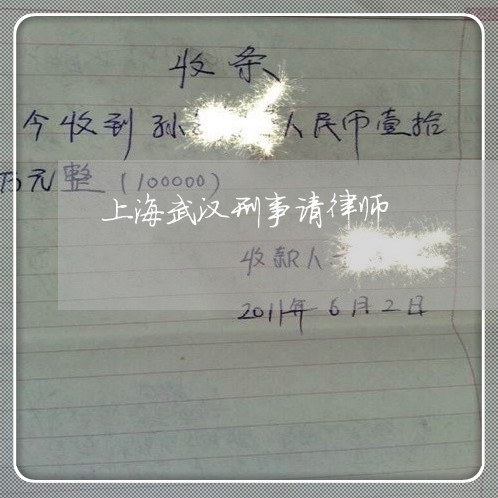 收条
今收到孙 人民币壹拾
万元整（100000）
上海武汉刑事请律师
收款人
2011年6月2日